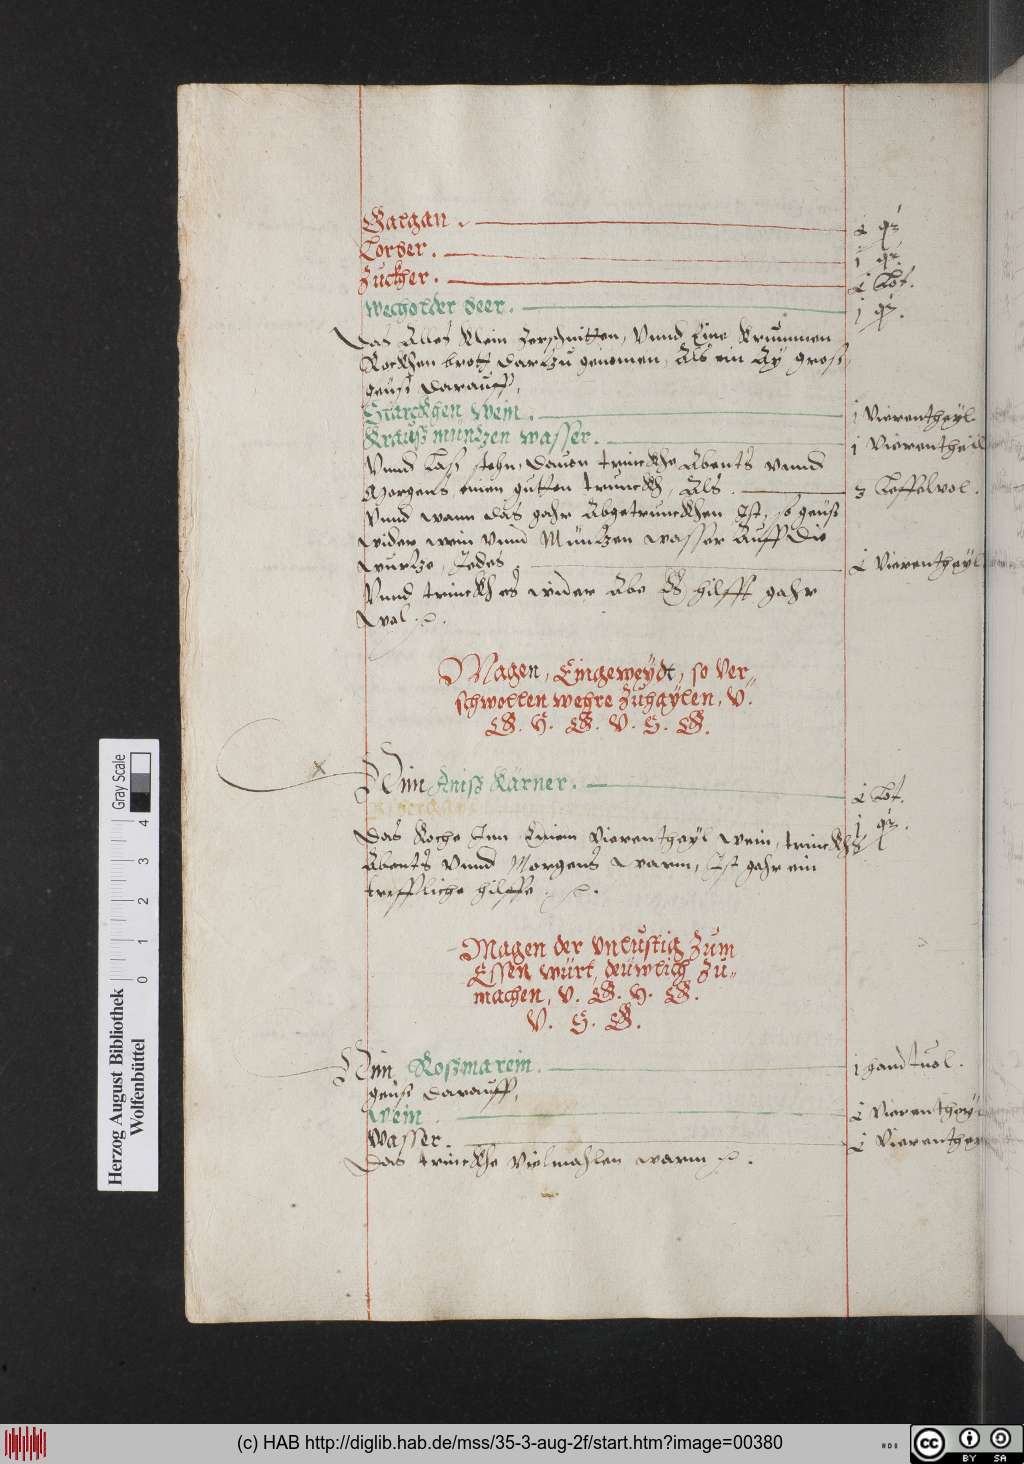 Galgan.
Lorber. 1 qz
Zuckher. Lot.
Wecholder beer. 1 qz.
Das Alles klein zerschnitten, Vnnd Eine Krummen
Rockhen brott dartzu genomen, Als ein Ay gross,
geuss darauff,
Starckhen Wein. 1 Vierentheyl.
Krauszmuntzen wasser. 1 Vierentheill
Vnnd Lass stehn, dauon trinckhe Abents vnnd
Morgens einen gutten trunckh, Als. 3 Leffelvol.
Vnnd wann das gahr Abgetrunckhen Ist, so geuss
wider wein vnnd Müntzen wasser Auff die
wurtze, Jedes. Vierentheyl
Vnnd trinckh es wider Abe Es hilfft gahr
wol.
Magen, Eingeweydt, so Ver-
schwollen wehre Zuhaylen, V.
G. H. G. V. S. G.
Nim Anisz Kärner. Lot.
1 qz.
Das Koche Inn Einem Vierentheyl wein, trinckhs
Abents Vnnd Morgens warm, Ist gahr ein
treffliche hilffe.
Magen der Vnlustig Zum
Essen würt, deuwlich Zu-
machen, V. G. H. G.
V. S. G.
Nim Roszmarein. 1 handtuol.
geuss darauff,
Wein Vierentheyl
Wasser. Vierenthey
Das trinckhe Vielmahlen warm.
Herzog August Bibliothek
Wolfenbüttel
0 1 2 3 4
Gray Scale
(c) HAB http://diglib.hab.de/mss/35-3-aug-2f/start.htm?image=00380
cc BY SA